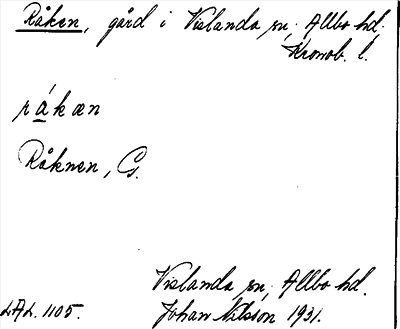 Råken, gård i Vislanda sn, Allbo hd.
Kronob. l.
råkæn
Råknen, G.
Vislanda sn, Allbo hd.
LAL. 1105. Johan Nilsson 1931.